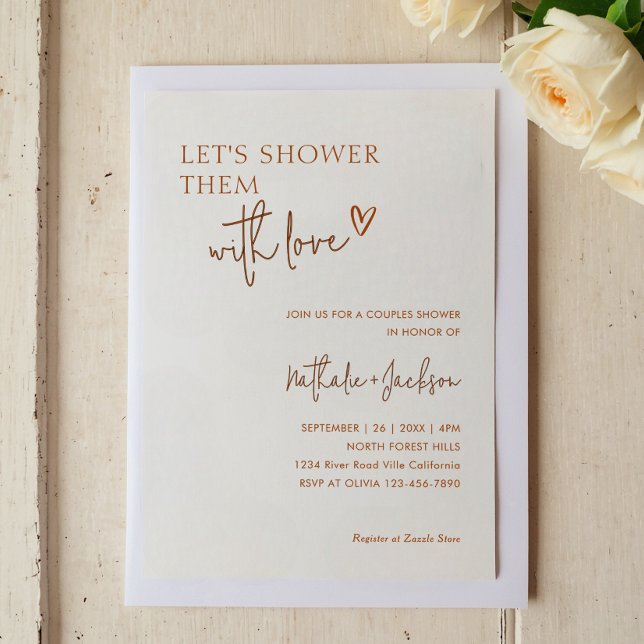 LET'S SHOWER
THEM
with love
JOIN US FOR A COUPLES SHOWER
IN HONOR OF
Nathalie + Jackson
SEPTEMBER | 26 | 20XX | 4PM
NORTH FOREST HILLS
1234 River Road Ville California
RSVP AT OLIVIA 123-456-7890
Register at Zazzle Store